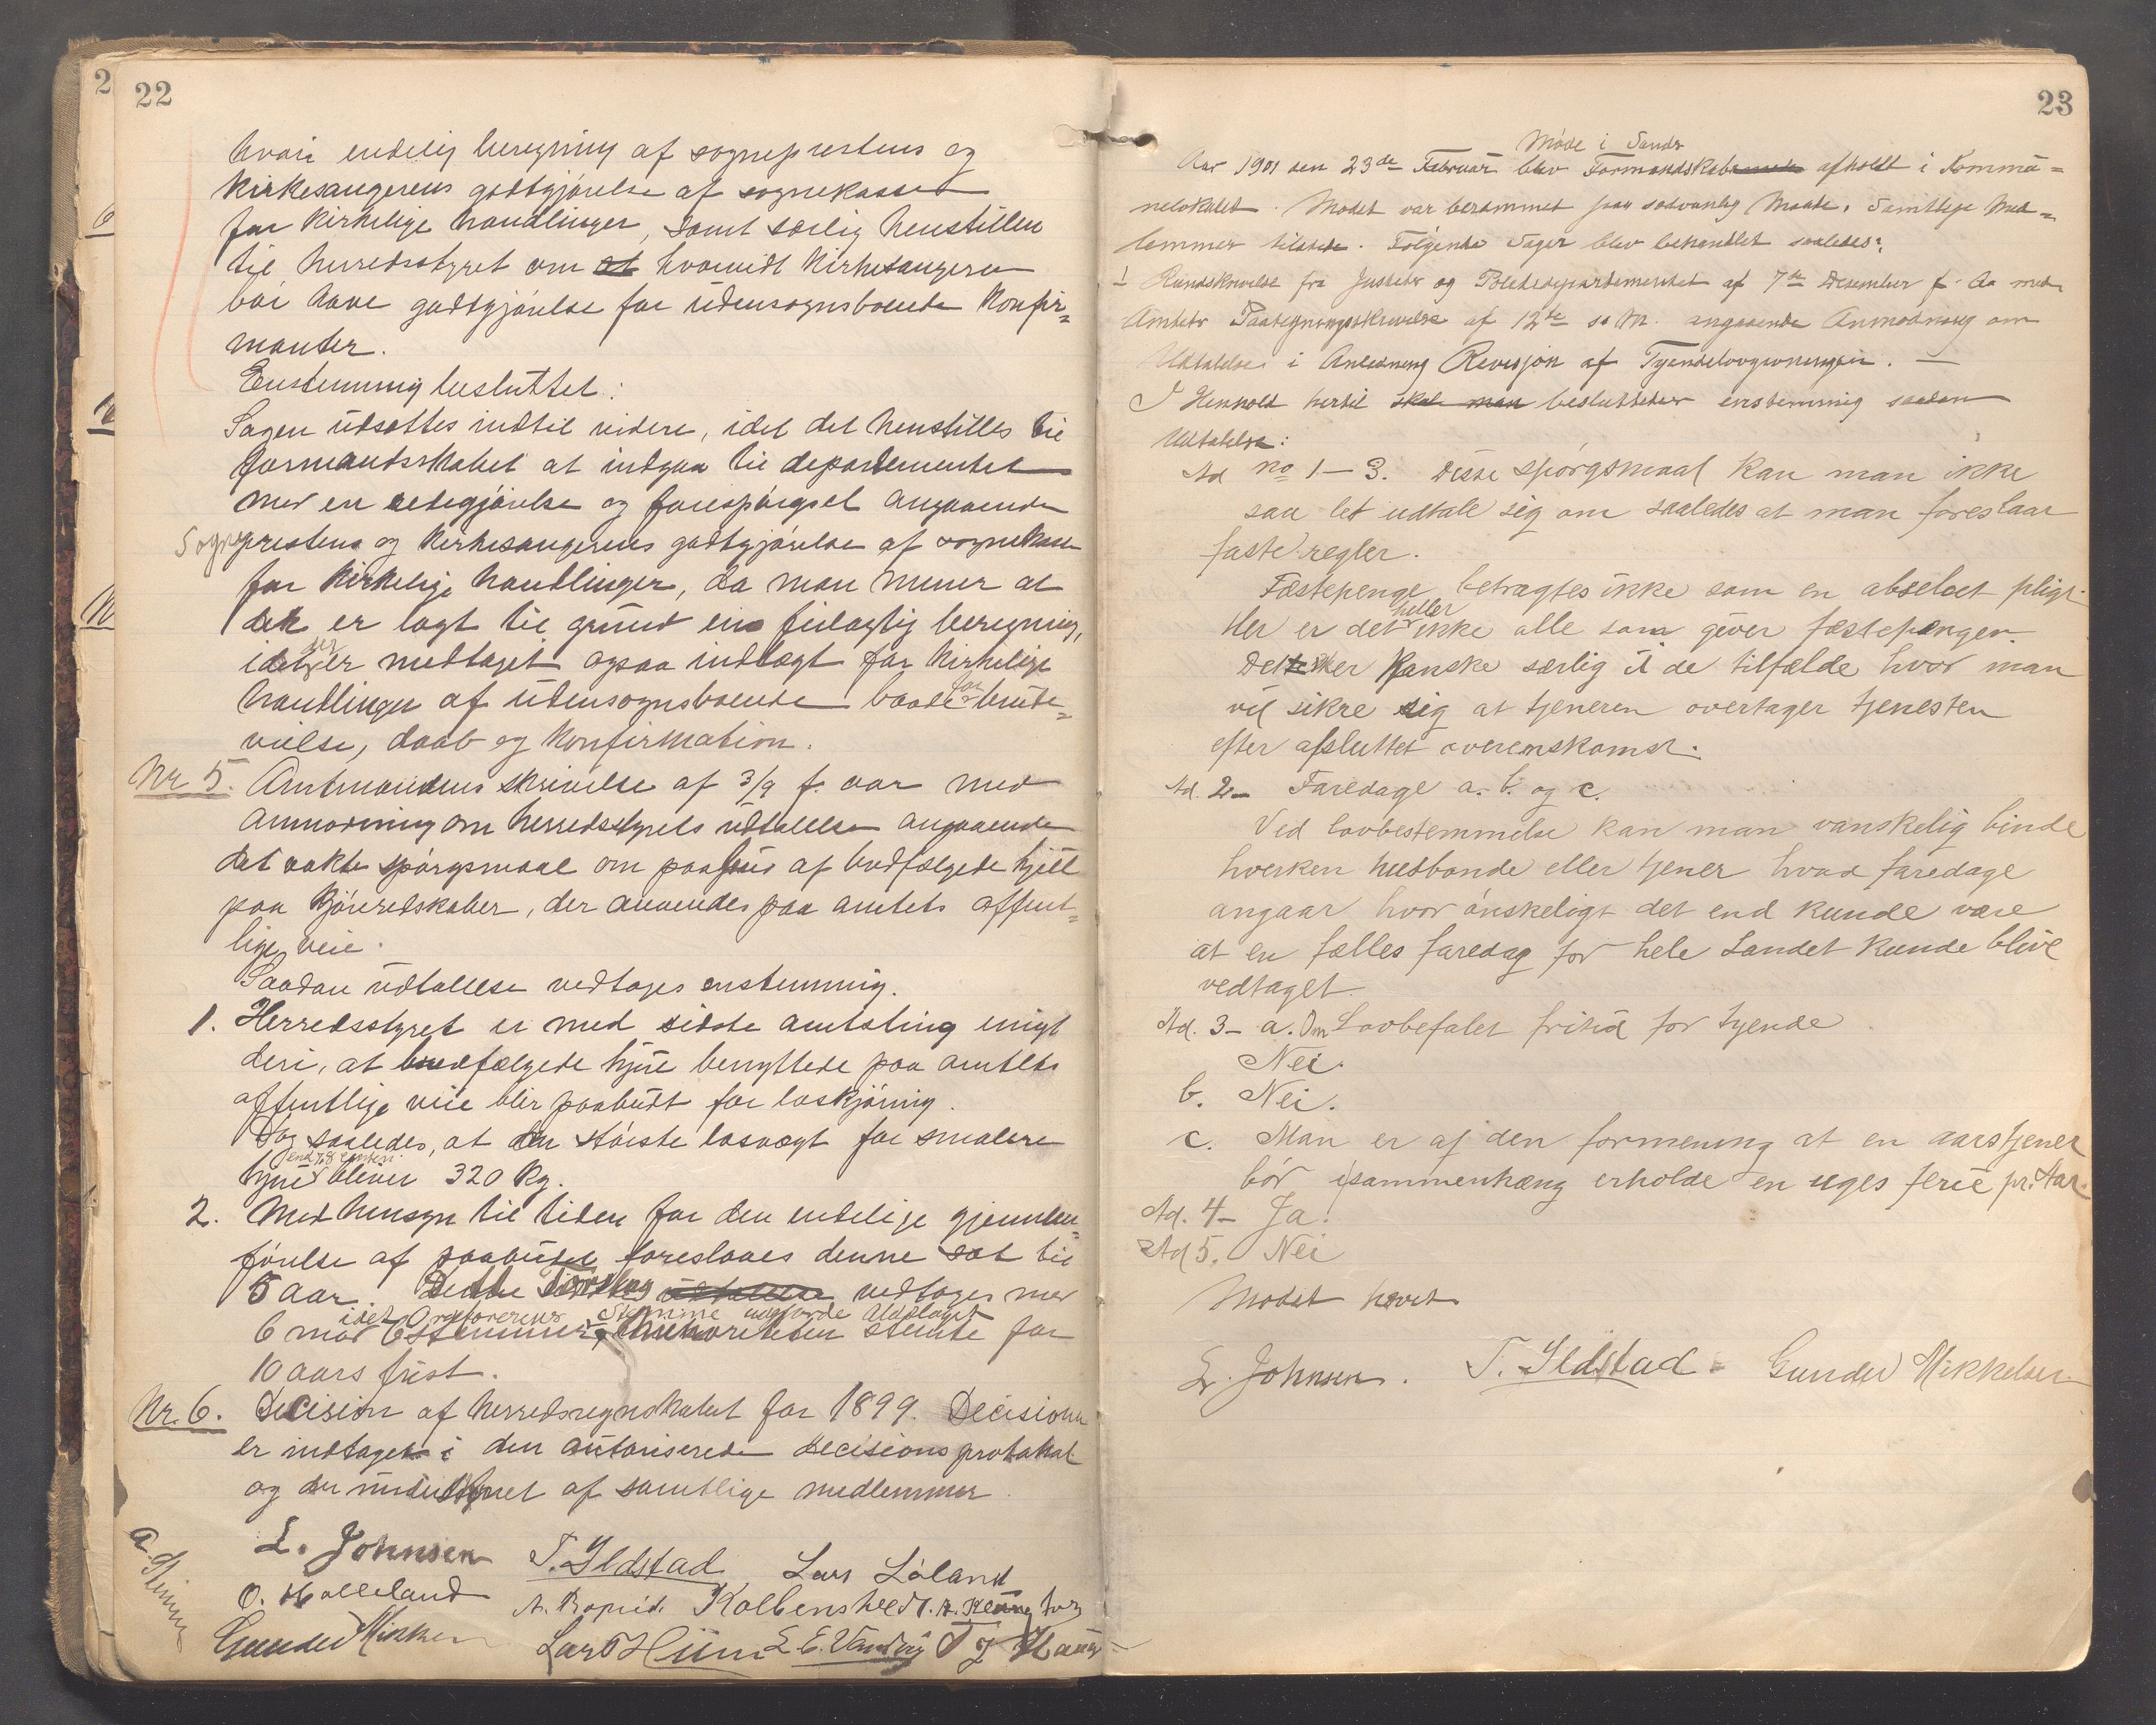 22
hvori endelig beregning af sogneprestens og
kirkesangerens godtgjørelse af sognekassen
for kirkelige handlinger, samt særlig henstillen
til herredsstyret om at hvorvidt kirkesangeren
bør have godtgjørelse for udensognsboende konfir=
manter.
Enstemmig besluttet:
Sagen udsættes indtil videre, idet det henstilles til
formandsskabet at indgaa til departementet
med en redegjørelse og forespørgsel angaaende
Sogneprestens og kirkesangerens godtgjørelse af sognekassen
for kirkelige handlinger, da man mener at
der er lagt til grund en feilagtig beregning,
idet der er medtaget ogsaa indtægt for kirkelige
handlinger af udensognsboende baade for brude=
vielse, daab og konfirmation.
Nr 5. Amtmandens skrivelse af 3/9 f. aar med
anmodning om herredsstyrets udtalelse angaaende
det vakte spørgsmaal om paabud af bredfælgede hjul
paa kjøreredskaber, der anvendes paa amtets offent=
lige veie.
Saadan udtalelse vedtages enstemmig.
1. Herredsstyret er med sidste amtsting enigt
deri, at bredfælgede hjul benyttede paa amtets
offentlige veie blir paabudt for laskjøring.
Dog saaledes, at den største lasvægt for smalere
hjul end 7,8 centim. bliver 320 kg.
2. Med hensyn til tiden for den endelige gjennem=
førelse af paabudet foreslaaes denne sat til
5 aar. Dette Forslag udtalelse vedtages med
6 mod 6 Stemmer, idet Ordførerens Stemme udgjorde Udslaget. Minoriteten stemte for
10 aars frist.
Nr. 6. Decision af herredsregnskabet for 1899. Decisionen
er indtaget i den autoriserede decisionsprotokol
og der underskrevet af samtlige medlemmer.
L. Johnsen T. Ildstad Lars Løland
O. Halleland Kolbenstvedt
Gunder Mikkelsen Lars Hiim L. E. Vandvig
23
Møde i Sands
Aar 1901 den 23de Februar blev Formandskabsmøde afholdt i Kommu=
nelokalet. Mødet var berammet paa sædvanlig Maade. Samtlige Med=
lemmer tilstede. Følgende Sager blev behandlet saaledes:
1 Rundskrivelse fra Justits og Politidepartementet af 7de Desember f. Aa med
Amtets Paategningsskrivelse af 12te s. M. angaaende Anmodning om
Udtalelse i Anledning Revisjon af Tyendelovgivningen. —
I Henhold hertil skal man besluttedes enstemmig saadan
Udtalelse:
Ad no 1–3. Disse spørgsmaal kan man ikke
saa let udtale sig om saaledes at man foreslaar
faste regler.
Fæstepenge betragtes ikke som en absolut pligt.
Her er det heller ikke alle som giver fæstepenger.
Det sker kanske særlig i de tilfælde hvor man
vil sikre sig at tjeneren overtager tjenesten
efter afsluttet overenskomst.
Ad. 2– Faredage a. b. og c.
Ved lovbestemmelse kan man vanskelig binde
hverken husbonde eller tjener hvad faredage
angaar hvor ønskeligt det end kunde være
at en fælles faredag for hele Landet kunde blive
vedtaget.
Ad. 3– a. Om Lovbefalet fritid for tyende
Nei.
b. Nei.
c. Man er af den formening at en aarstjener
bør i sammenhæng erholde en uges ferie pr. Aar.
Ad. 4– Ja.
Ad 5. Nei
Mødet hævet
L. Johnsen. T. Ildstad Gunder Mikkelsen